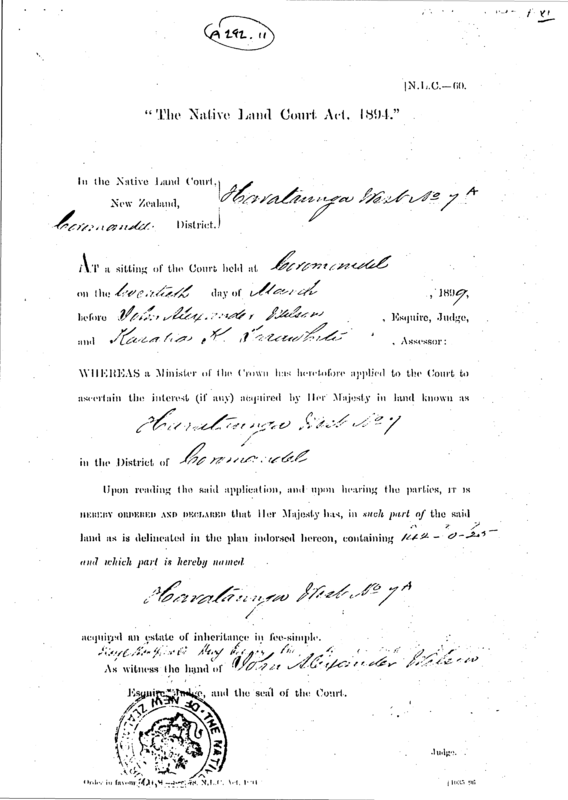 A 292. 11
[N.L.C.—60.
"The Native Land Court Act, 1894."
In the Native Land Court,
New Zealand,
Coromandel District.
Harataunga West No 7A
At a sitting of the Court held at Coromandel
on the twentieth day of March , 1899,
before John Alexander Wilson , Esquire, Judge,
and , Assessor:
WHEREAS a Minister of the Crown has heretofore applied to the Court to
ascertain the interest (if any) acquired by Her Majesty in land known as
Harataunga West No 7
in the District of Coromandel
Upon reading the said application, and upon hearing the parties, IT IS
HEREBY ORDERED AND DECLARED that Her Majesty has, in such part of the said
land as is delineated in the plan indorsed hereon, containing
and which part is hereby named
Harataunga West No 7A
acquired an estate of inheritance in fee-simple.
As witness the hand of John Alexander Wilson
Esquire, Judge, and the seal of the Court.
Judge.
Order in favour N.L.C. Act, 1894